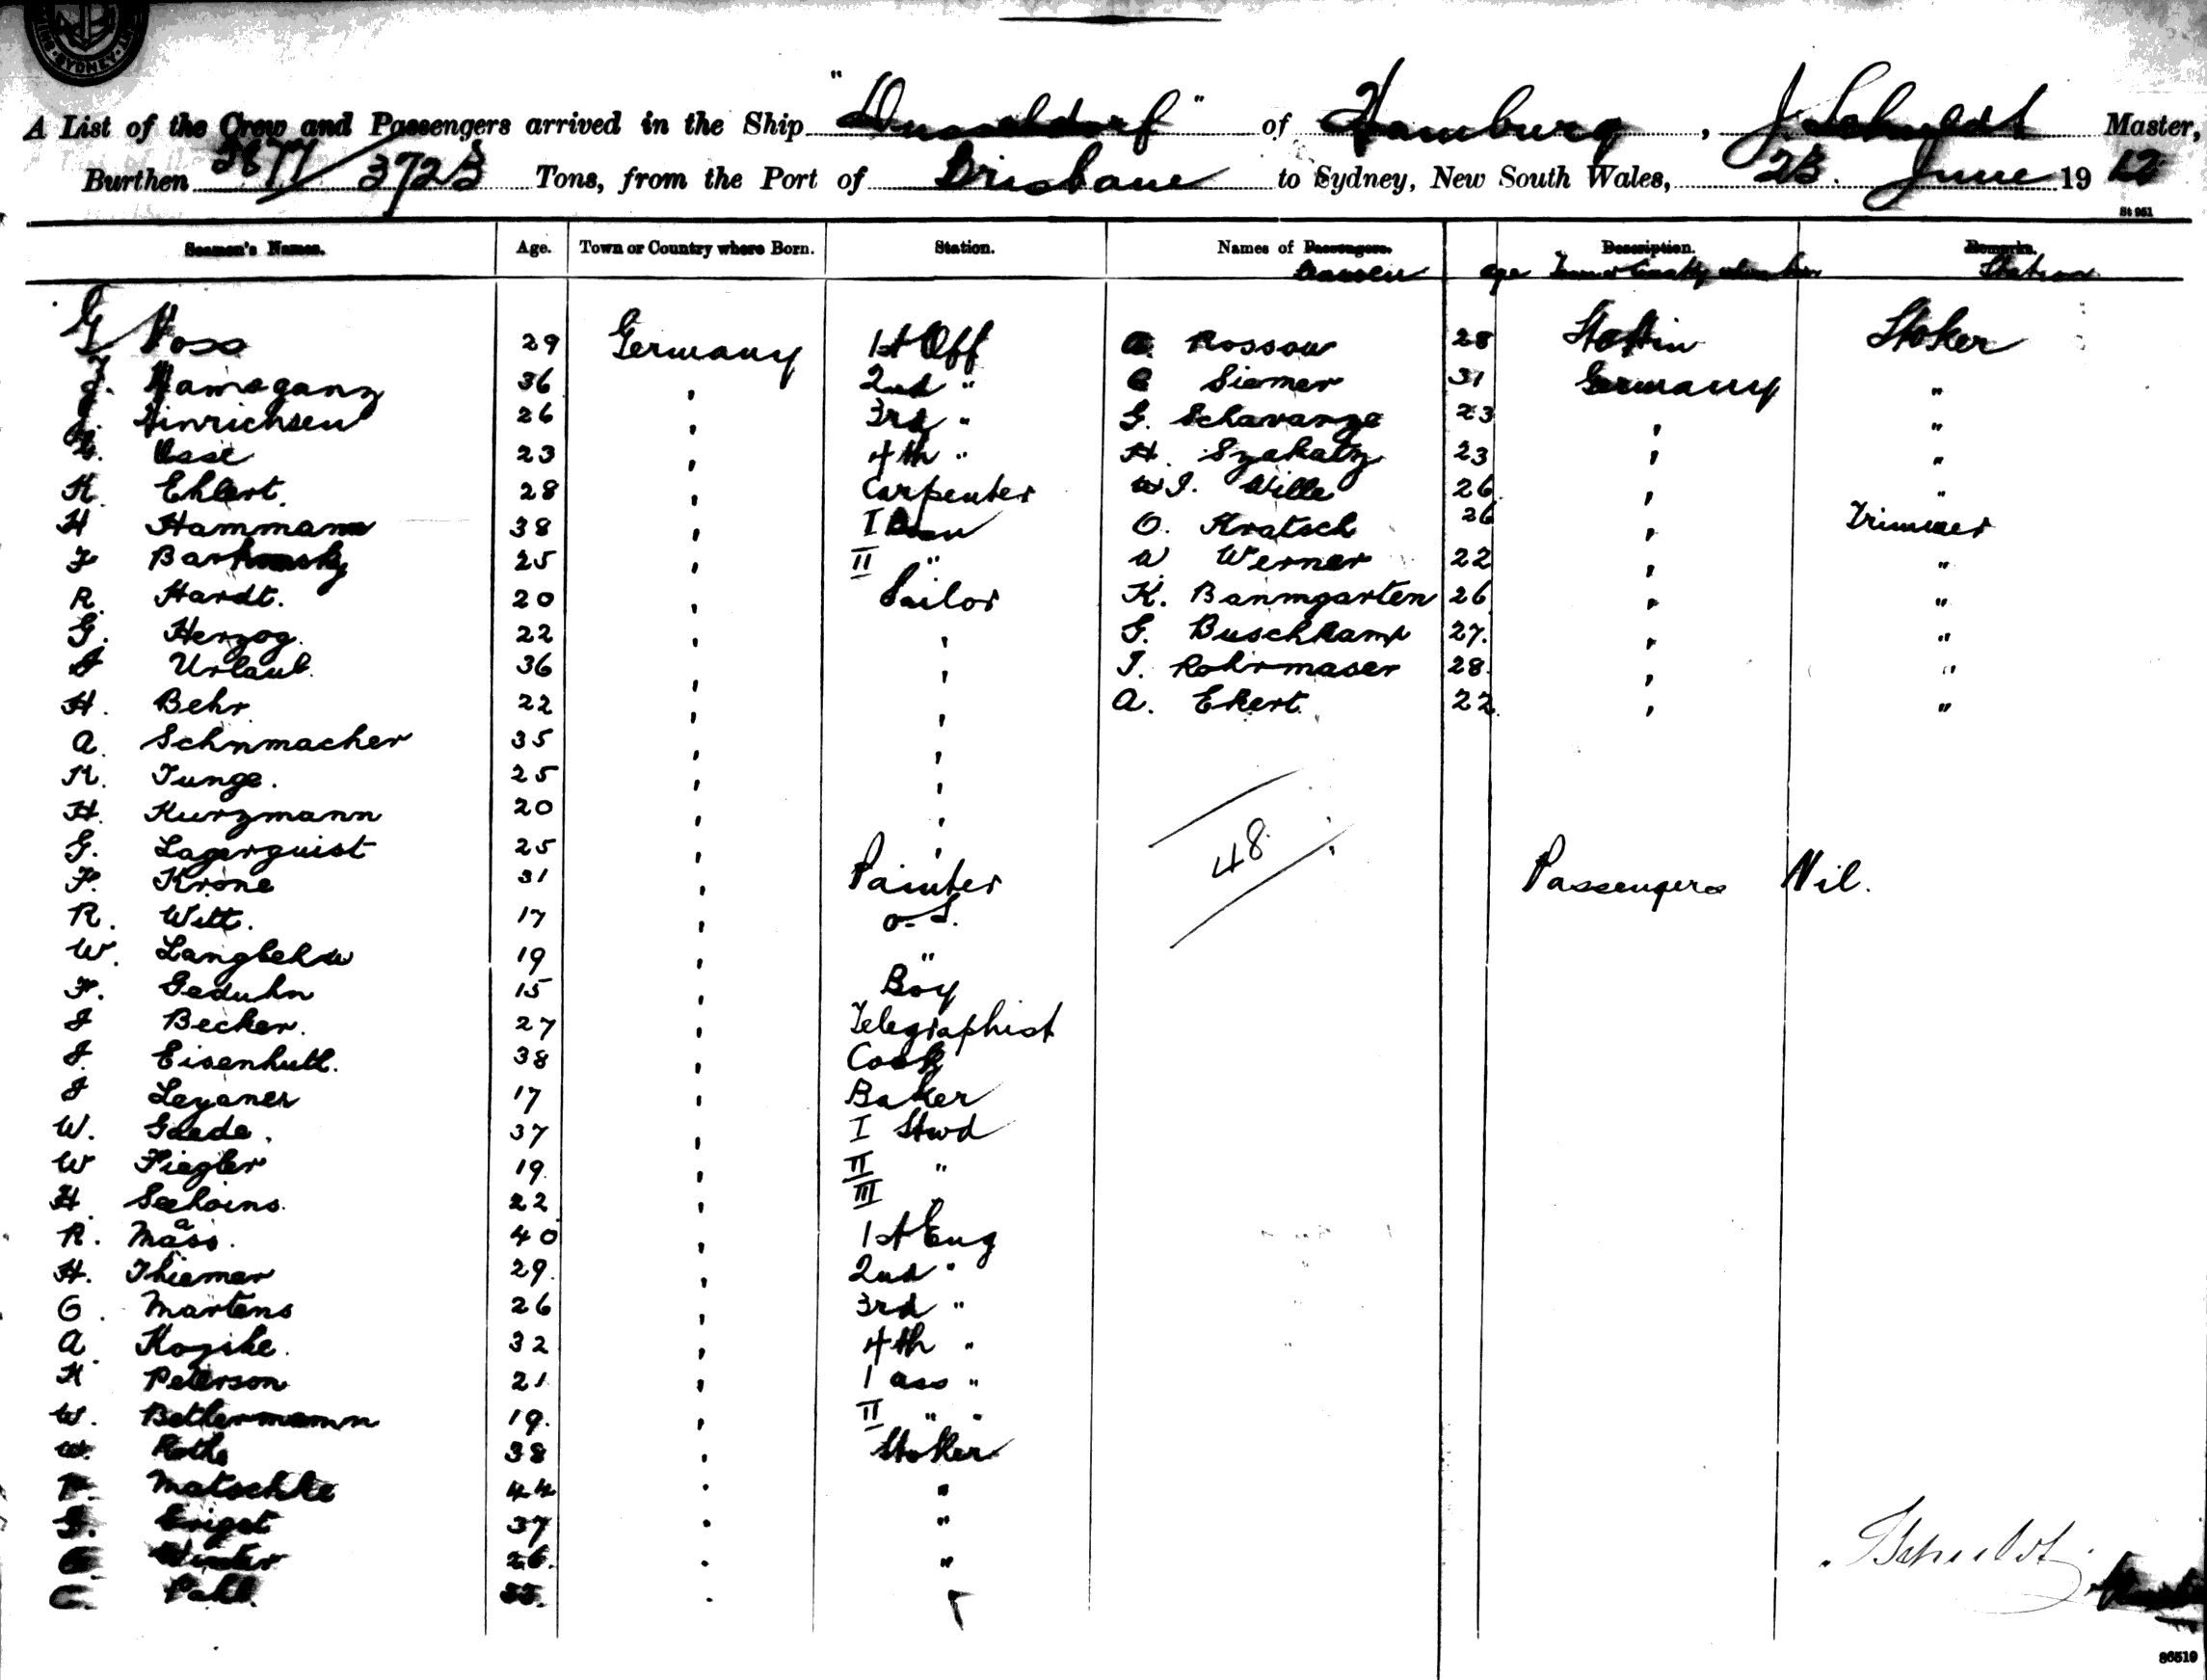 SYDNEY
A List of the Crew and Passengers arrived in the Ship "Dusseldorf" of Hamburg, J. Schuldt Master,
Burthen 3877/3725 Tons, from the Port of Brisbane to Sydney, New South Wales, 23. June 1912
St 961
Seamen's Names. Age. Town or Country where Born. Station. Names of Passengers. Description. Remarks.
age Town or Country where born Station
G Voss 29 Germany 1st Off A. Rossow 28 Stettin Stoker
36 , 2nd " Siemer 31 Germany "
Hinrichsen 26 , 3rd " G. Schavanze 23 , "
Osse 23 , 4th " H. Szakatz 23 , "
K. Ehlert. 28 , Carpenter W.J. Wille 26 , "
H Hammann 38 , I O. Kratsch 26 , Trimmer
F 25 , II " W Werner 22 , "
R. Hardt. 20 , Sailor K. Banmgarten 26 , "
G. Herzog. 22 , , G. Buschkamp 27. , "
J Urlaub. 36 , , J. Rohrmaser 28. , "
H. Behr 22 , , A. Ekert. 22. , "
A. Schnmacher 35 , ,
K. Junge. 25 , ,
H. Kurzmann 20 , ,
G. Lagerquist 25 , ,
48
F. Krone 31 , Painter Passengers Nil.
R. Witt. 17 , o.S.
W. Langbehn 19 , "
F. Geduhn 15 , Boy
J Becker. 27 , Telegraphist
J. Eisenhutl. 38 , Cook
J Leyaner 17 , Baker
W. Gaede. 37 , I Stwd
W Fiegler 19. , II "
H. Seehoins. 22 , III
R. Maass. 40 , 1st Eng
H. Thiemer 29. , 2nd "
O. Martens 26 , 3rd "
A. Kogske. 32 , 4th "
K Peterson 21 , 1 ass "
W. Bethermamn 19. , II " "
W. Rothe 38 , Stoker
P. Matschke 44 . "
G. 37 . "
Winter 26. . "
C. Pahl. .
Schuldt
86519